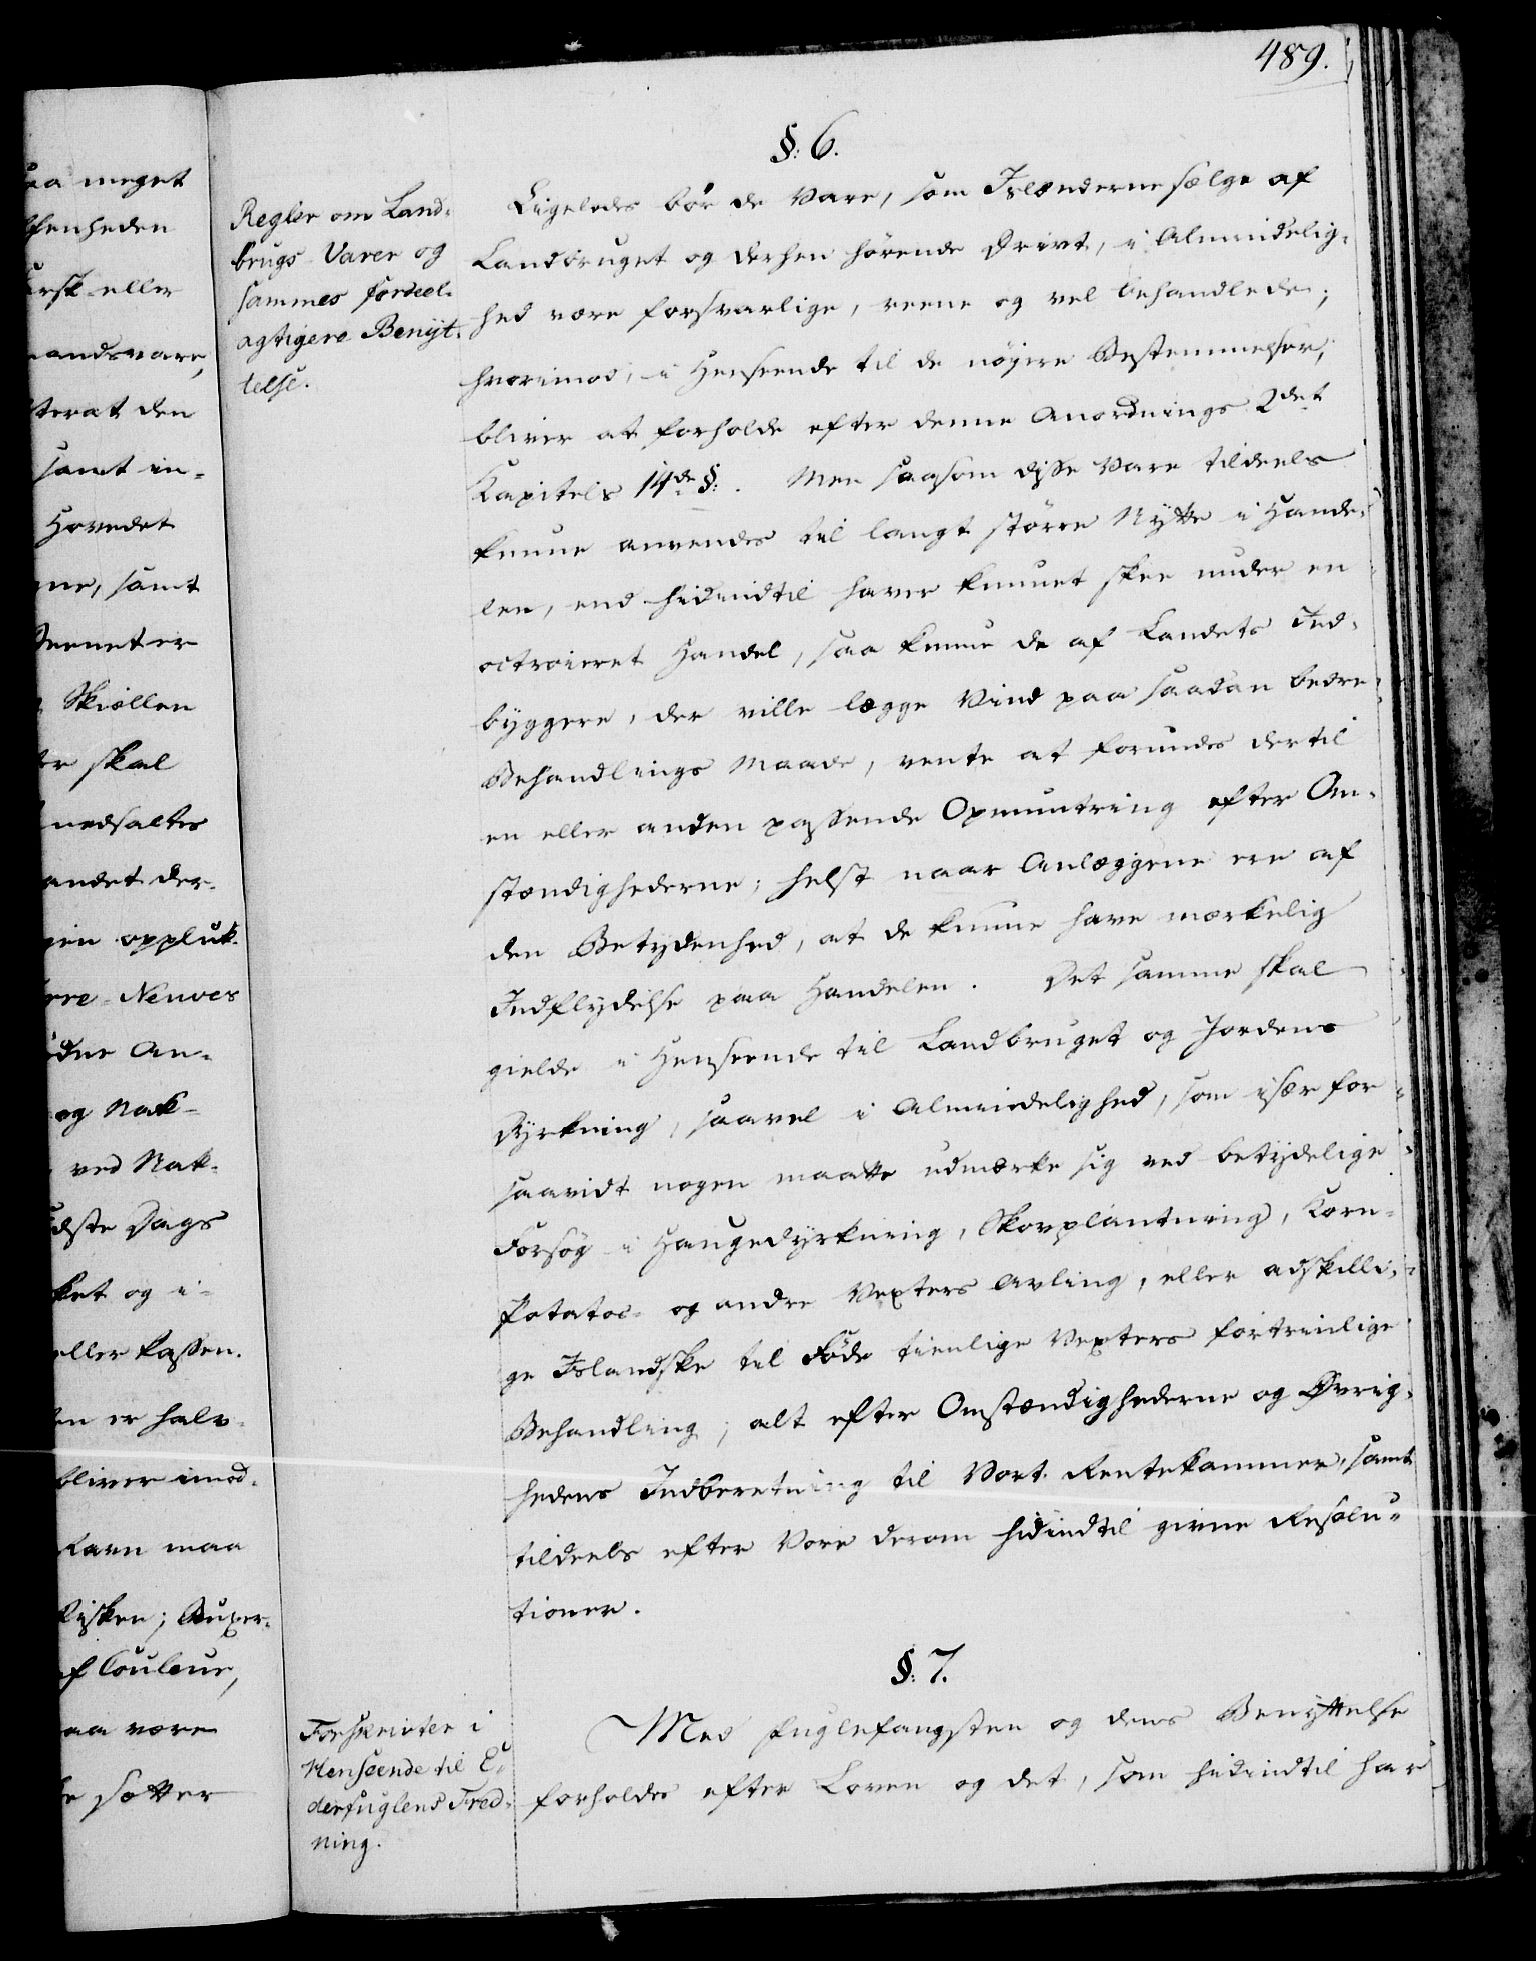 489.
§: 6.
Regler om Land-
brugs-Varer og
sammes fordeel-
agtigere Benyt-
telse.
Ligeledes bör de Vare, som Islænderne sælge af
Landbruget og derhen hörende Drivt, i Almindelig-
hed være forsvarlige, reene og vel behandlede;
hvorimod, i Henseende til de nöjere Bestemmelser,
bliver at forholde efter denne Anordnings 2det
Kapitels 14de §:. Men saasom disse Vare tildeels
kunne anvendes til langt större Nytte i Hande-
len, end hidindtil haver kunnet skee under en
octroieret Handel, saa kunne de af Landets Ind-
byggere, der ville lægge Vind paa saadan bedre
Behandlings Maade, vente at forundes dertil
en eller anden passende Opmuntring efter Om-
stændighederne; helst naar Anlæggene ere af
den Betydenhed, at de kunne have mærkelig
Indflydelse paa Handelen. Det samme skal
gielde i Henseende til Landbruget og Jordens
Dyrkning, saavel i Almindelighed, som især for-
saavidt nogen maatte udmærke sig ved betydelige
Forsög i Haugedyrkning, Skovplantning, Korn-
Potatos- og andre Vexters Avling, eller adskilli-
ge Islandske til Föde tienlige Vexters fortrinlige
Behandling; alt efter Omstændighederne og Övrig-
hedens Indberetning til Vort Rentekammer, samt
tildeels efter Vore derom hidindtil givne Resolu-
tioner.
§: 7.
Forskrivter i
Henseende til E-
derfuglens Fred-
ning.
Med Fuglefangsten og dens Benyttelse
forholdes efter Loven og det, som hidindtil har
aa meget
enheden
ersk eller
andsvare,
terat den
samt in-
Hovedet
ne, samt
eenet er
Skiællen
er skal
nedsaltes
andet der-
gen oppluk-
rre-Neuves
dne An-
og Nak-
ved Nak-
dste Dags
ket og i-
eller kassen.
en er halv-
bliver imod-
Ravn maa
Fisken; Super-
f Couleur,
aa være
sætter